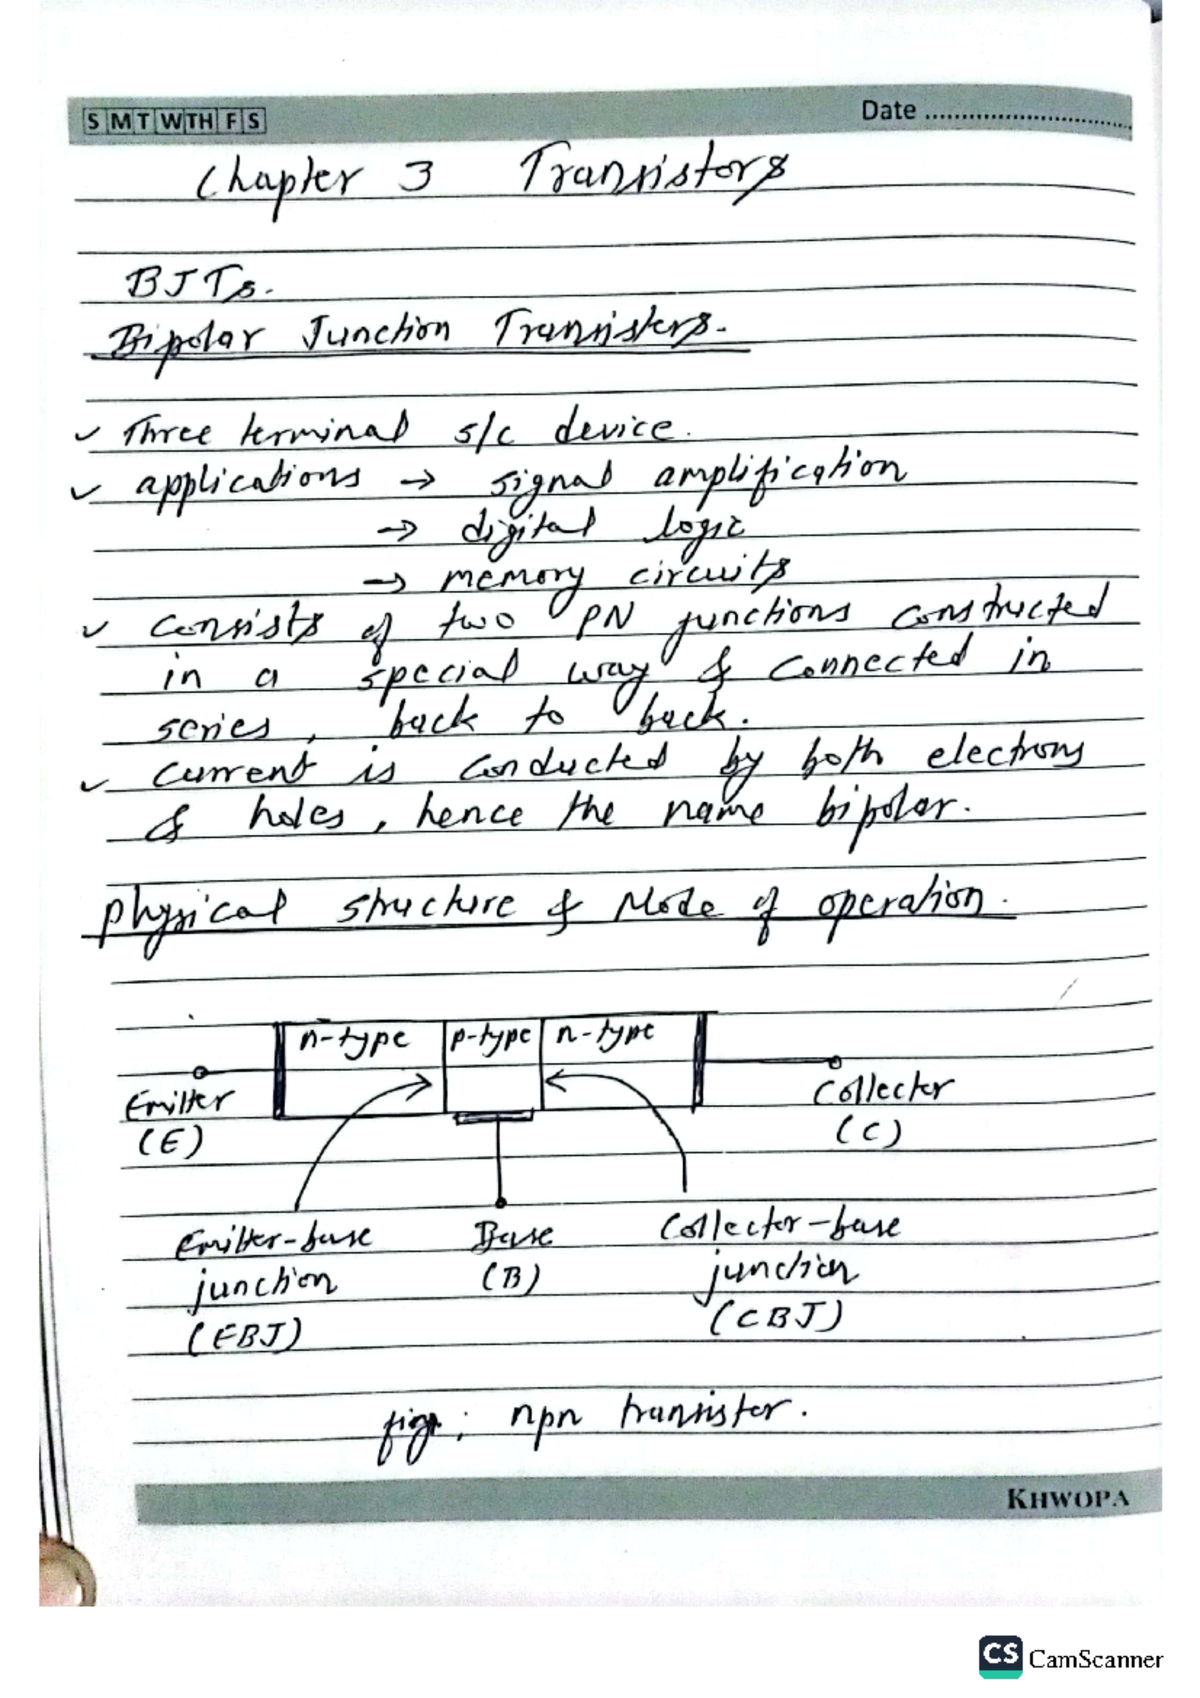 S M T W TH F S
Date ..............................
Chapter 3 Transistors
BJTs.
Bipolar Junction Transistors.
✓ Three terminal s/c device.
✓ applications → signal amplification
→ digital logic
→ memory circuits
✓ consists of two PN junctions constructed
in a special way & connected in
series, back to back.
✓ current is conducted by both electrons
& holes, hence the name bipolar.
Physical structure & Mode of operation.
n-type p-type n-type
Emitter
(E)
Collector
(C)
Emitter-base
junction
(EBJ)
Base
(B)
Collector-base
junction
(CBJ)
fig: npn transistor.
KHWOPA
CS CamScanner